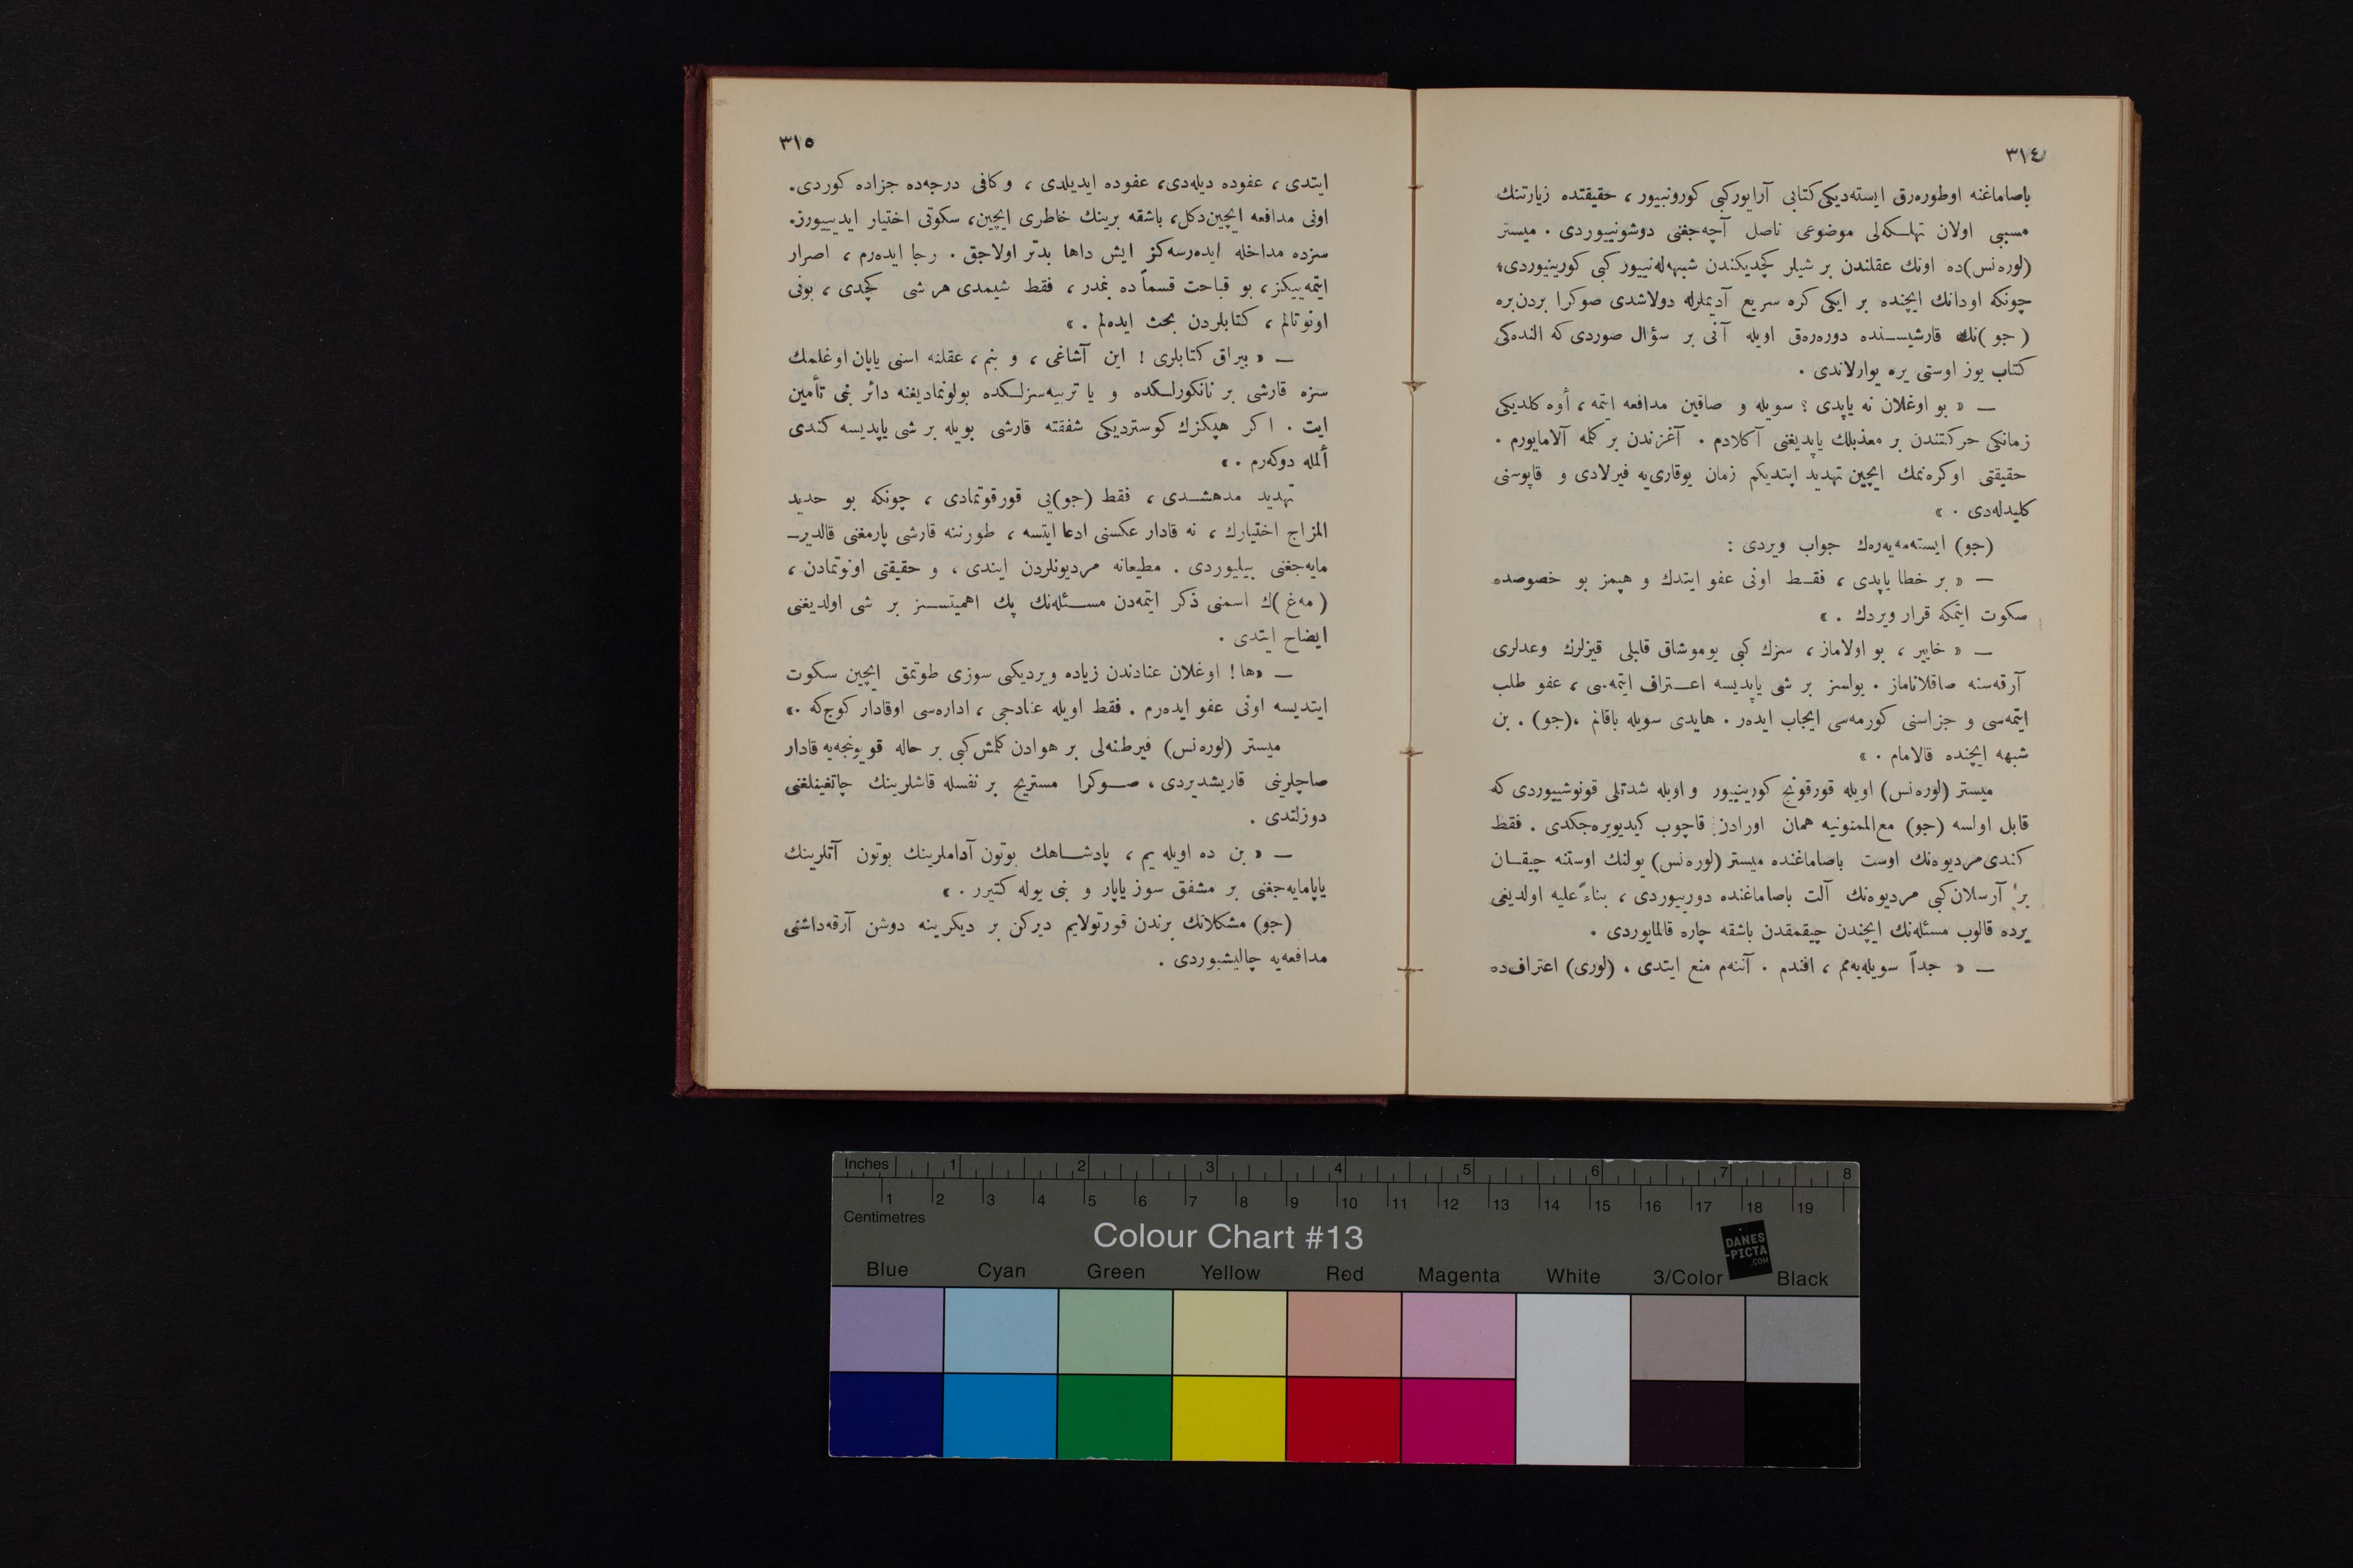 ٣١٤
باصاماغنه اوطوره‌رق ایسته‌دیکی کتابی آرایورکبی کورونییور ، حقیقتده زیارتنك
مسببی اولان تهلـکه‌لی موضوعی ناصل آچه‌جغنی دوشونییوردی . میستر
(لوره‌نس)ده اونك عقلندن بر شیلر کچدیکندن شبهه‌له‌نییور کبی کورینیوردی؛
چونکه اودانك ایچنده بر ایکی کره سریع آدیملرله دولاشدی صوکرا بردن‌بره
( جو )نك قارشیسـنده دوره‌رەق اویله آنی بر سؤال صوردی که النده‌کی
کتاب یوز اوستی یره یوارلاندی .
— « بو اوغلان نه یاپدی ؟ سویله و صاقین مدافعه ایتمه ، أوه کلدیکی
زمانکی حرکتندن بر معذبلك یاپدیغنی آکلادم . آغزندن بر کلمه آلامایورم .
حقیقتی اوکره‌نمك ایچین تهدید ایتدیکم زمان یوقاری‌یه فیرلادی و قاپوسنی
کلیدله‌دی . »
(جو) ایسته‌مه‌یه‌رەك جواب ویردی :
— « بر خطا یاپدی ، فقـط اونی عفو ایتدك و هپمز بو خصوصده
سکوت ایتمکه قرار ویردك . »
— « خاییر ، بو اولاماز ، سزك کبی یوموشاق قلبلی قیزلرك وعدلری
آرقه‌سنه صاقلاناماز . یولسز بر شی یاپدیسه اعـتراف ایتمه‌سی ، عفو طلب
ایتمه‌سی و جزاسنی کورمه‌سی ایجاب ایده‌ر . هایدی سویله باقالم ،(جو) . بن
شبهه ایچنده قالامام . »
میستر (لوره‌نس) اویله قورقونج کورینییور و اویله شدتلی قونوشییوردی که
قابل اولسه (جو) مع‌الممنونیه همان اورادن قاچوب کیدیویره‌جکدی . فقط
کندی مردیوه‌نك اوست باصاماغنده میستر (لوره‌نس) یولنك اوستنه چیقـان
بر آرسلان کبی مردیوه‌نك آلت باصاماغنده دورییوردی ، بناءً علیه اولدیغی
یرده قالوب مسئله‌نك ایچندن چیقمقدن باشقه چاره قالمایوردی .
— « جداً سویله‌یه‌مم ، افندم . آننه‌م منع ایتدی . (لوری) اعتراف‌ده
٣١٥
ایتدی ، عفوده دیله‌دی، عفوده ایدیلدی ، و کافی درجه‌ده جزاده کوردی.
اونی مدافعه ایچین‌دکل، باشقه برینك خاطری ایچین، سکوتی اختیار ایدییورز.
سزده مداخله ایده‌رسه‌کز ایش داها بدتر اولاجق . رجا ایده‌رم ، اصرار
ایتمه‌ییکز ، بو قباحت قسماً ده بمدر ، فقط شیمدی هر شی کچدی ، بونی
اونوتالم ، کتابلردن بحث ایده‌لم . »
— « بیراق کتابلری ! این آشاغی ، و بنم ، عقلنه اسنی یاپان اوغلمك
سزه قارشی بر نانکورلـکده و یا تربیه‌سزلـکده بولونمادیغنه دائر بنی تأمین
ایت . اکر هپکزك کوستردیکی شفقته قارشی بویله بر شی یاپدیسه کندی
ألمله دوکه‌رم . »
تهدید مدهشـدی ، فقط (جو)یی قورقوتمادی ، چونکه بو حدید
المزاج اختیارك ، نه قادار عکسنی ادعا ایتسه ، طوروننه قارشی پارمغنی قالدیرـ
مایه‌جغنی بیلیوردی . مطیعانه مردیونلردن ایندی ، و حقیقتی اونوتمادن ،
( مه‌غ )ك اسمنی ذکر ایتمه‌دن مسـئله‌نك پك اهمیتسـز بر شی اولدیغنی
ایضاح ایتدی .
— «ها ! اوغلان عنادندن زیاده ویردیکی سوزی طوتمق ایچین سکوت
ایتدیسه اونی عفو ایده‌رم . فقط اویله عنادجی ، اداره‌سی اوقادار کوج‌که .»
میستر (لوره‌نس) فیرطنه‌لی بر هوادن کلمش کبی بر حاله قویونجه‌یه قادار
صاچلرینی قاریشدیردی ، صـوکرا مستریح بر نفسله قاشلرینك چاتغینلغنی
دوزلتدی .
— « بن ده اویله یم ، پادشـاهك بوتون آداملرینك بوتون آتلرینك
یاپامایه‌جغنی بر مشفق سوز یاپار و بنی یوله کتیرر . »
(جو) مشکلاتك برندن قورتولایم دیرکن بر دیکرینه دوشن آرقه‌داشنی
مدافعه‌یه چالیشیوردی .
Inches 1 2 3 4 5 6 7 8
1 2 3 4 5 6 7 8 9 10 11 12 13 14 15 16 17 18 19
Centimetres
Colour Chart #13
DANES
-PICTA
.COM
Blue Cyan Green Yellow Red Magenta White 3/Color Black